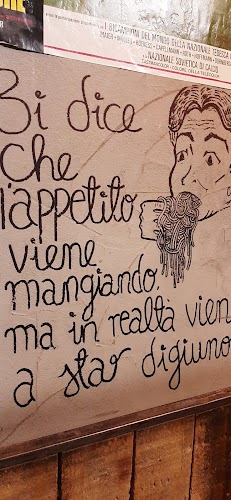 I BICAMPIONI DEL MONDO DELLA NAZIONALE TEDESCA
NAZIONALE SOVIETICA DI CALCIO
Si dice
che
l'appetito
viene
mangiando,
ma in realtà vien
a star digiuno